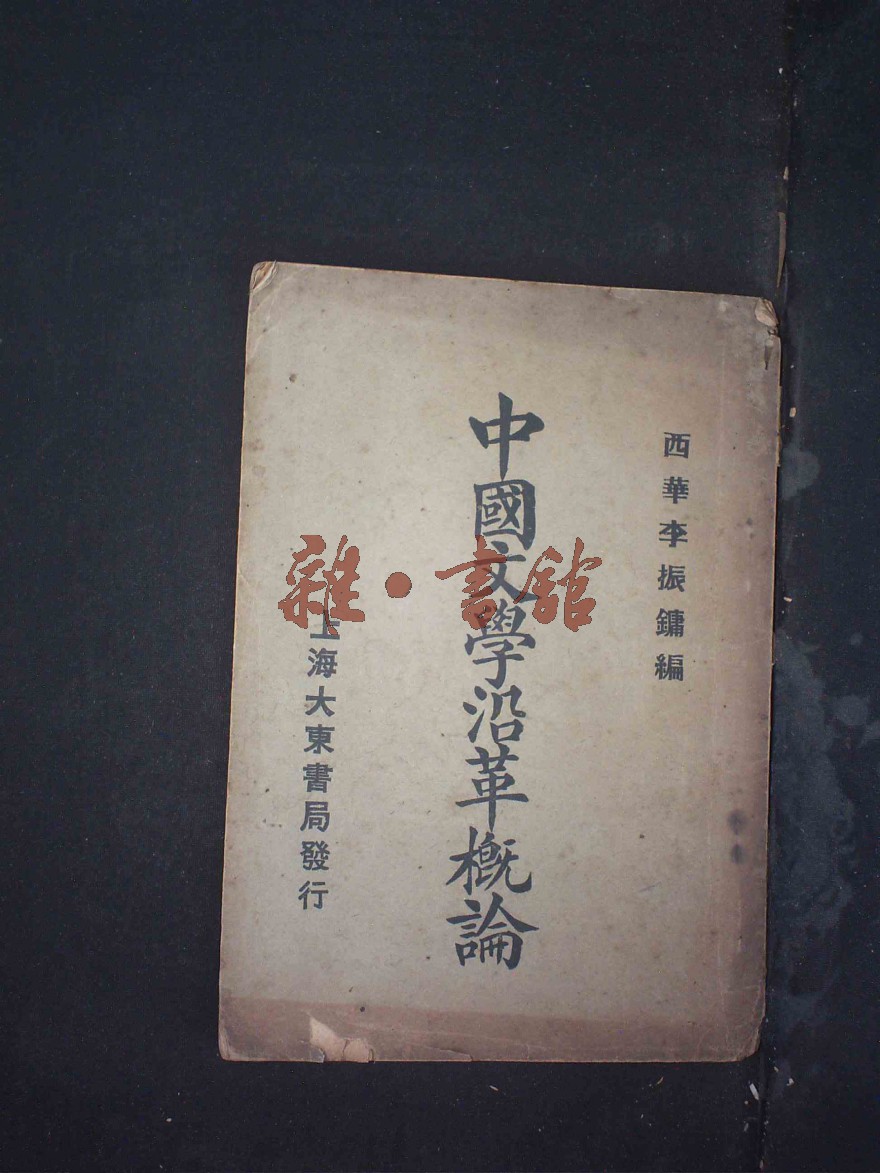 西華李振鏞編
中國文學沿革概論
上海大東書局發行
雜·書館